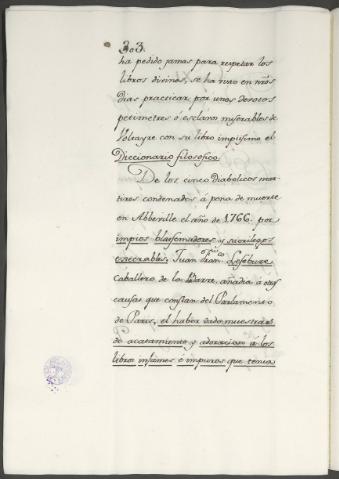 303.
ha pedido jamas para respetar los
libros divinos, se ha visto en nrôs
dias practicar por unos devotos
petimetres ó esclavos miserables de
Voltayre con su libro impiisimo el
Diccionario filosofico.
De los cinco diabolicos mar-
tires condenados á pena de muerte
en Abbeville el año de 1766. por
impios blasfemadores y sacrilegos
execrables, Juan Fran.co Lefebure
caballero de la Barre, añadia á otras
causas que constan del Parlamento
de Paris, el haber dado muestras
de acatamiento y adoracion á los
libros infames é impuros que tenia